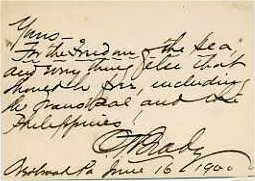 Yours—
For the Freedom of the Sea,
and everything else that
should be free, including
the Transvaal and the
Philippines!
C T Brady
June 16 / 1900